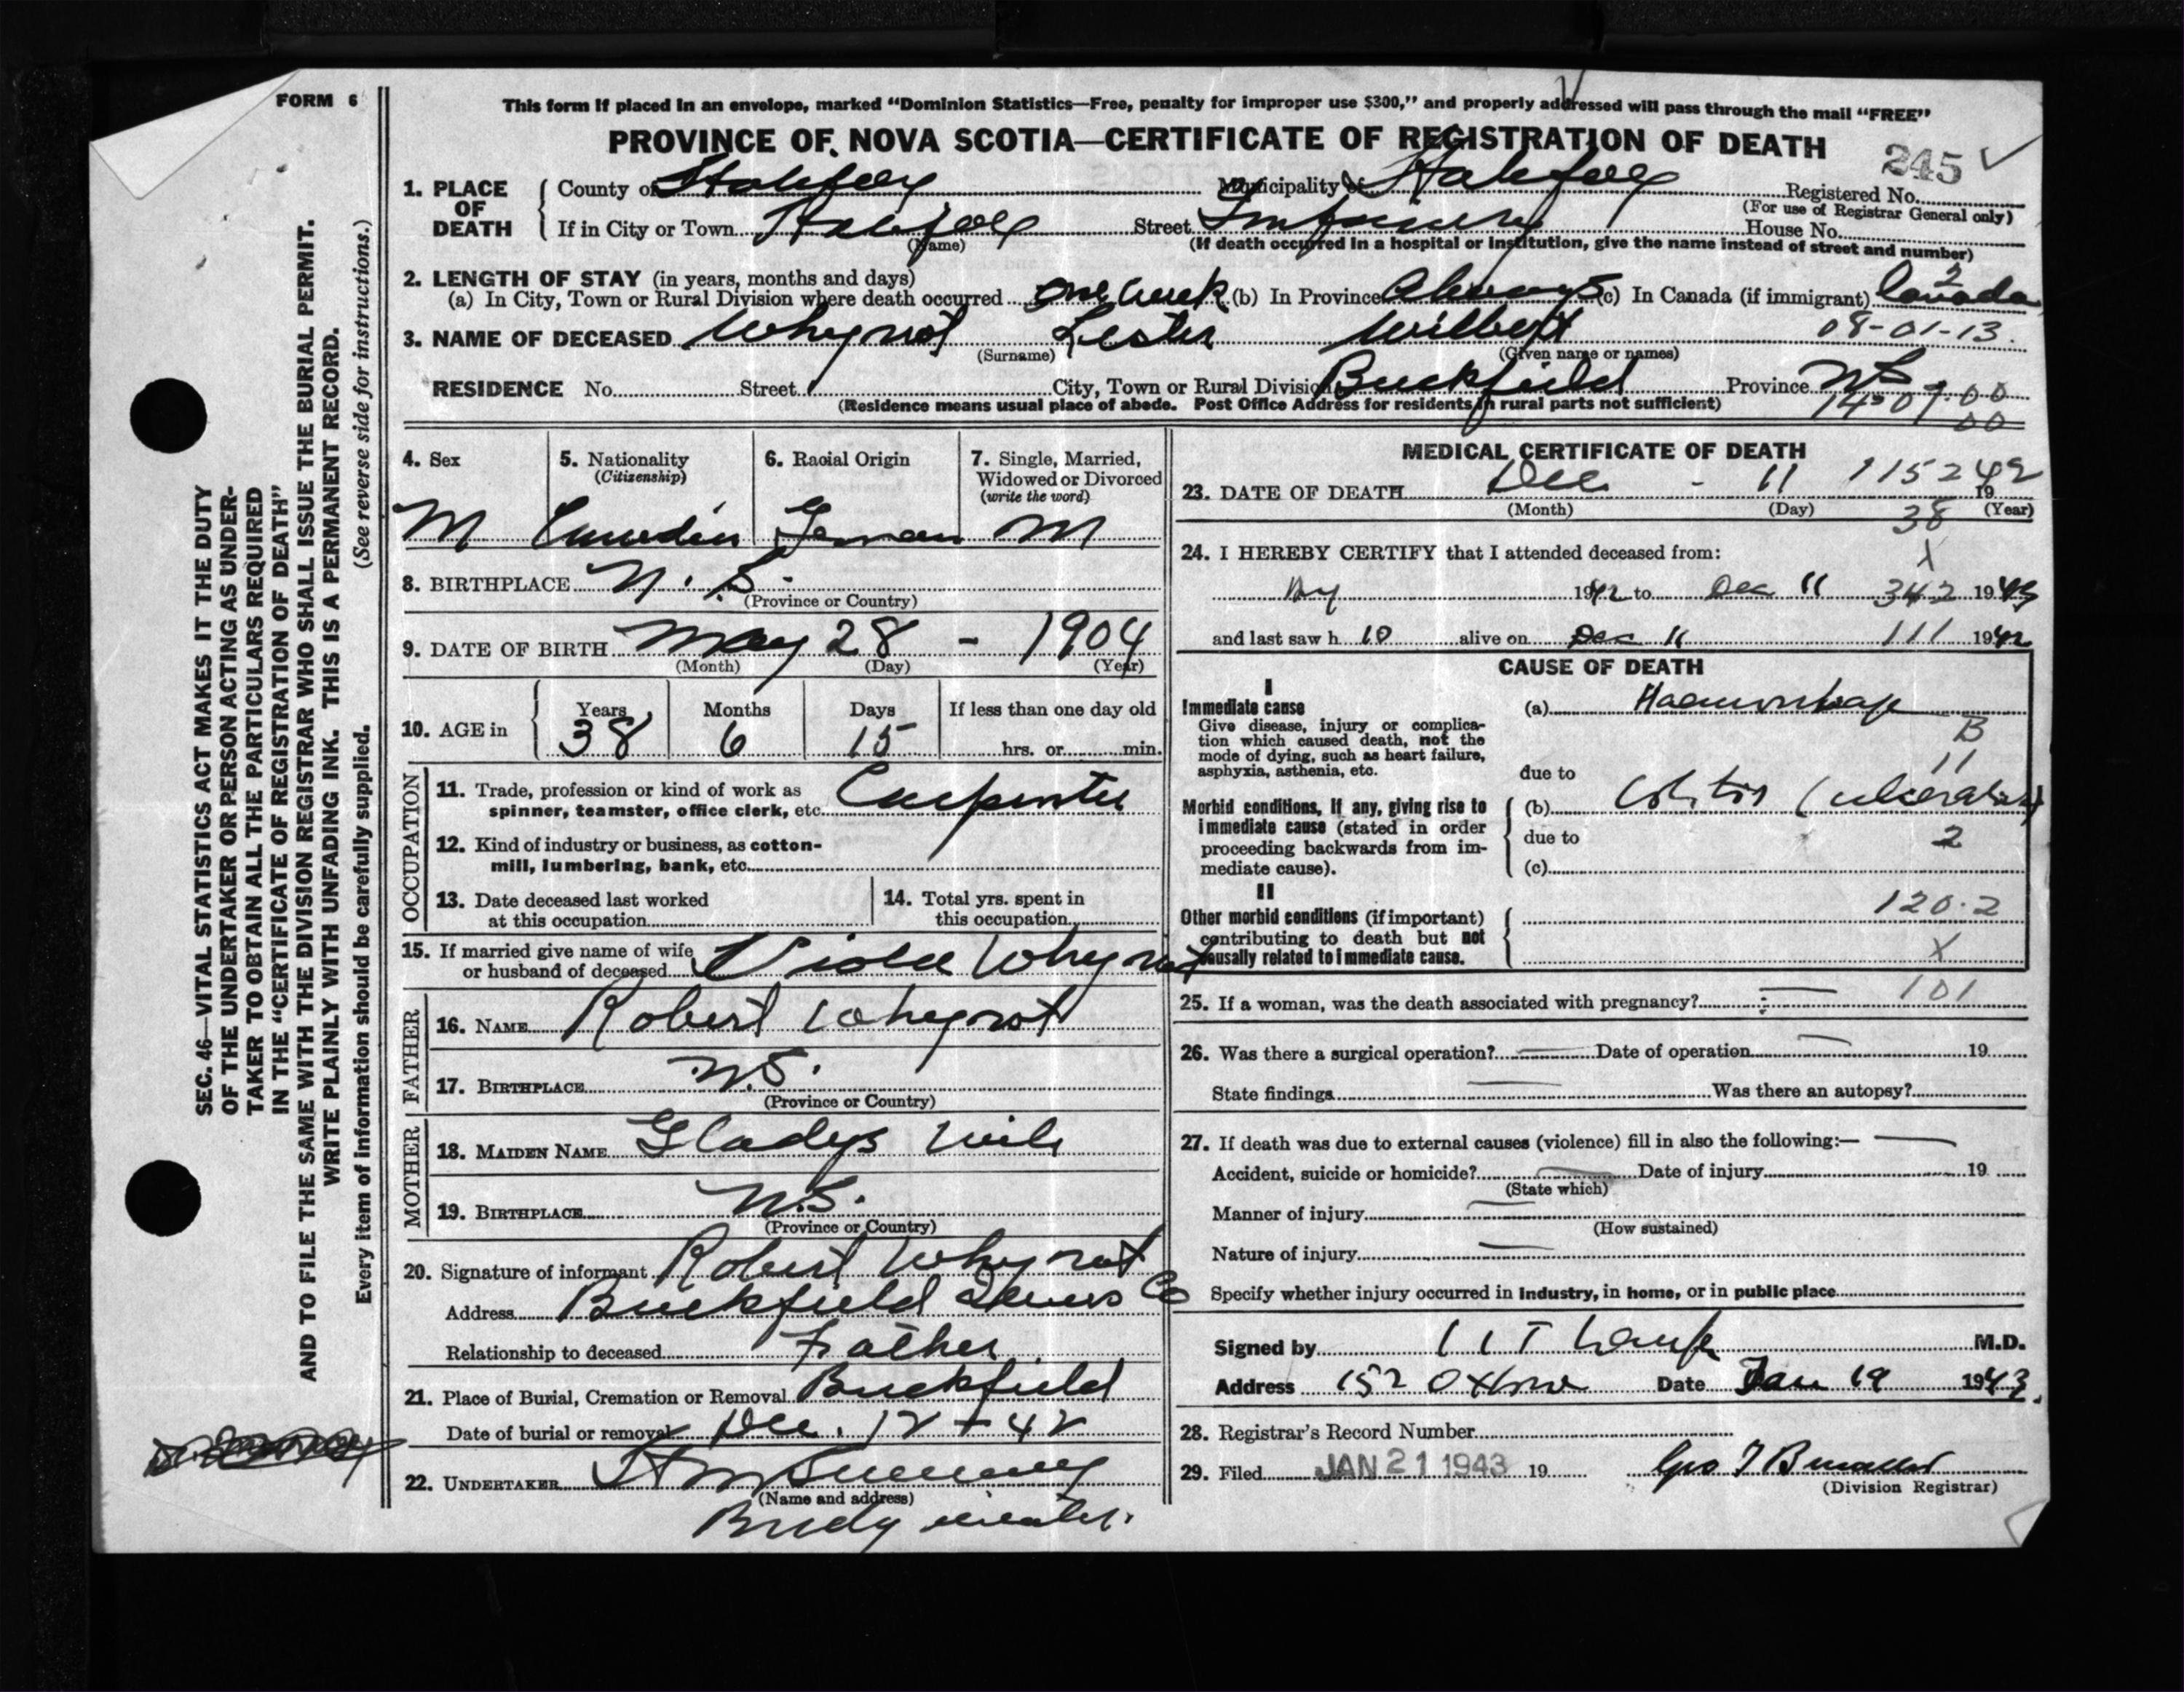 FORM 6
This form if placed in an envelope, marked "Dominion Statistics—Free, penalty for improper use $300," and properly addressed will pass through the mail "FREE"
PROVINCE OF NOVA SCOTIA—CERTIFICATE OF REGISTRATION OF DEATH
245
1. PLACE OF DEATH County of Halifax Municipality of Halifax Registered No.
(For use of Registrar General only)
If in City or Town Halifax Street Infirmary House No.
(Name) (If death occurred in a hospital or institution, give the name instead of street and number)
2. LENGTH OF STAY (in years, months and days)
2
(a) In City, Town or Rural Division where death occurred One week (b) In Province Always (c) In Canada (if immigrant) Canada
3. NAME OF DECEASED Whynot Lester Wilbert 08-01-13.
(Surname) (Given name or names)
RESIDENCE No. Street City, Town or Rural Division Buckfield Province NS
(Residence means usual place of abode. Post Office Address for residents in rural parts not sufficient) 14-09-00
00
4. Sex 5. Nationality 6. Racial Origin 7. Single, Married,
(Citizenship) Widowed or Divorced
(write the word)
M Canadian German M
8. BIRTHPLACE N.S.
(Province or Country)
9. DATE OF BIRTH May 28 - 1904
(Month) (Day) (Year)
Years Months Days If less than one day old
10. AGE in 38 6 15 hrs. or min.
OCCUPATION
11. Trade, profession or kind of work as
spinner, teamster, office clerk, etc. Carpenter
12. Kind of industry or business, as cotton-
mill, lumbering, bank, etc.
13. Date deceased last worked 14. Total yrs. spent in
at this occupation this occupation
15. If married give name of wife
or husband of deceased Viola Whynot
FATHER
16. NAME Robert Whynot
17. BIRTHPLACE N.S.
(Province or Country)
MOTHER
18. MAIDEN NAME Gladys Wile
19. BIRTHPLACE N.S.
(Province or Country)
20. Signature of informant Robert Whynot
Address Buckfield Queens Co
Relationship to deceased Father
21. Place of Burial, Cremation or Removal Buckfield
Date of burial or removal Dec. 12 - 42
22. UNDERTAKER
(Name and address)
Bridgewater.
MEDICAL CERTIFICATE OF DEATH
1152
23. DATE OF DEATH Dec - 11 1942
(Month) (Day) (Year)
38
24. I HEREBY CERTIFY that I attended deceased from:
X
1942 to Dec 11 342 1943
and last saw h alive on Dec 11 111 1942
CAUSE OF DEATH
I
Immediate cause (a) Haemorrhage
Give disease, injury or complica-
tion which caused death, not the
mode of dying, such as heart failure,
asphyxia, asthenia, etc.
B
11
due to
Morbid conditions, if any, giving rise to
immediate cause (stated in order
proceeding backwards from im-
mediate cause).
(b) Colitis (ulcerative)
due to 2
(c)
II
120.2
Other morbid conditions (if important)
contributing to death but not
causally related to immediate cause.
X
25. If a woman, was the death associated with pregnancy? 101
26. Was there a surgical operation? Date of operation 19
State findings Was there an autopsy?
27. If death was due to external causes (violence) fill in also the following:—
Accident, suicide or homicide? Date of injury 19
(State which)
Manner of injury
(How sustained)
Nature of injury
Specify whether injury occurred in industry, in home, or in public place
Signed by M.D.
Address 152 Date Jan 19 1943.
28. Registrar's Record Number
29. Filed JAN 21 1943 19
(Division Registrar)
SEC. 46—VITAL STATISTICS ACT MAKES IT THE DUTY
OF THE UNDERTAKER OR PERSON ACTING AS UNDER-
TAKER TO OBTAIN ALL THE PARTICULARS REQUIRED
IN THE "CERTIFICATE OF REGISTRATION OF DEATH"
AND TO FILE THE SAME WITH THE DIVISION REGISTRAR WHO SHALL ISSUE THE BURIAL PERMIT.
WRITE PLAINLY WITH UNFADING INK. THIS IS A PERMANENT RECORD.
Every item of information should be carefully supplied. (See reverse side for instructions.)